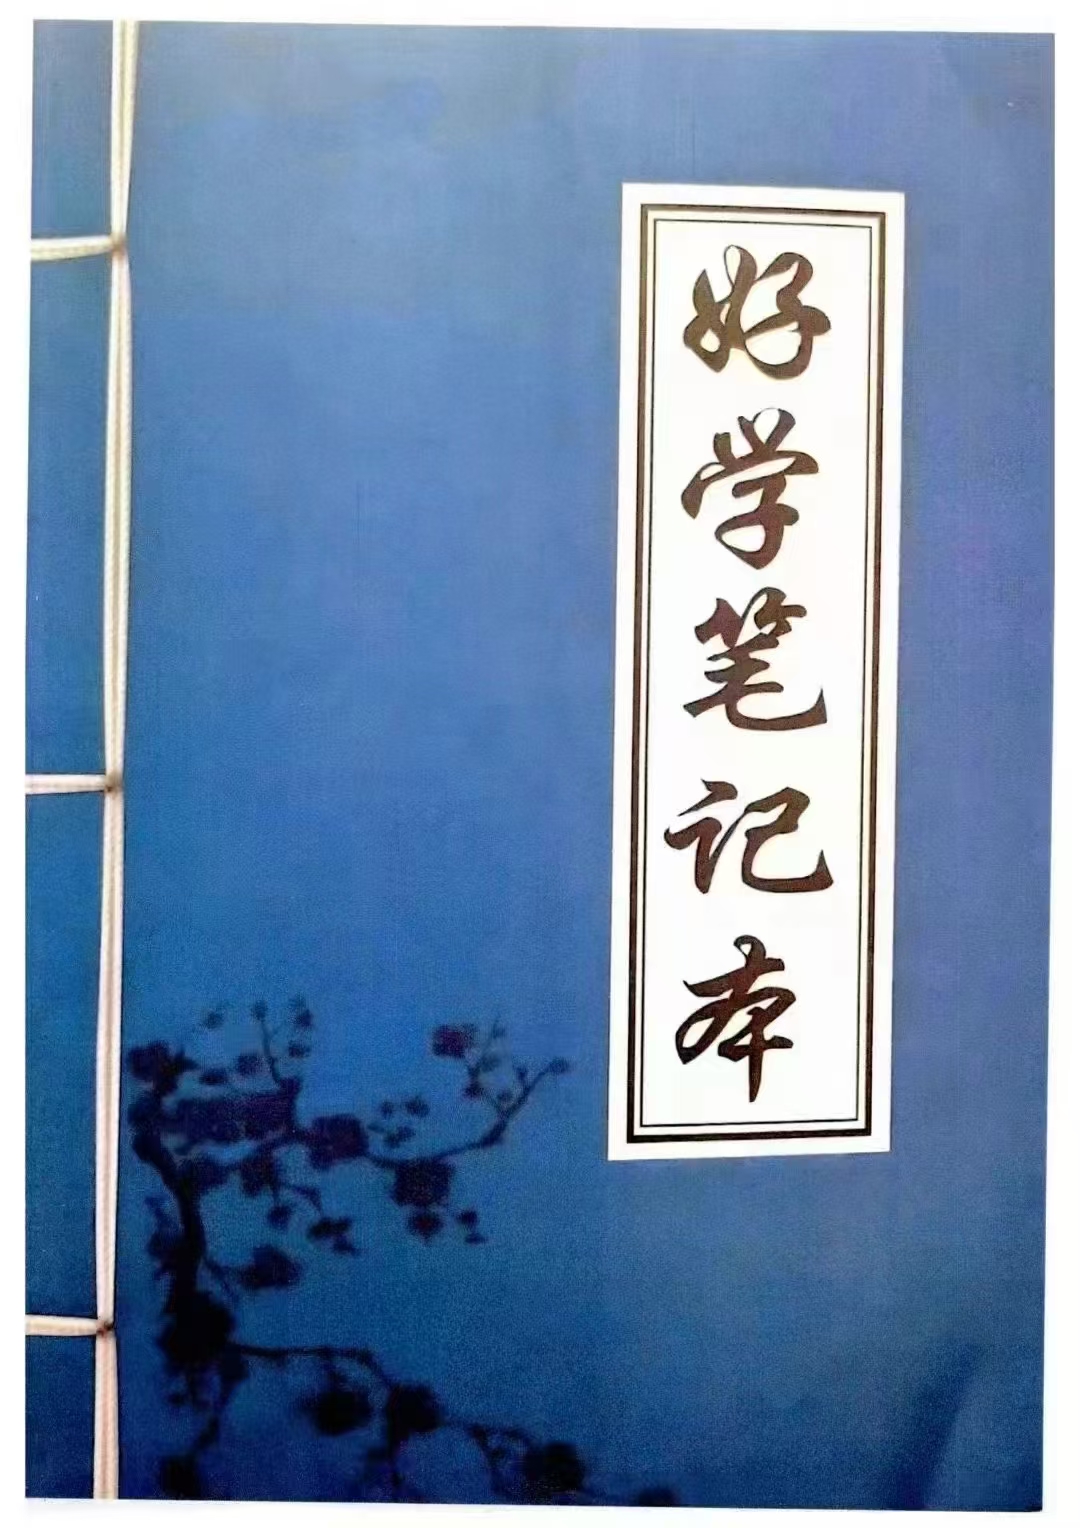 好学笔记本